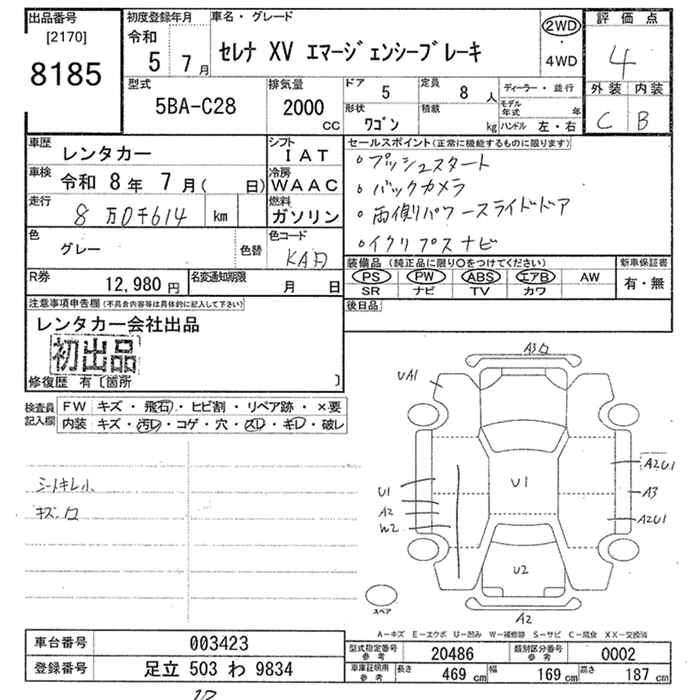 出品番号
[2170]
8185
初度登録年月
令和
5 7月
車名・グレード
セレナ XV エマージェンシーブレーキ
2WD
・
4WD
評価点
4
外装 内装
C B
型式
5BA-C28
排気量
2000
CC
ドア
5
定員
8 人
形状
ワゴン
積載
kg
ディーラー・並行
モデル年式 年
ハンドル 左・右
車歴
レンタカー
シフト
IAT
車検
令和 8年 7月( 日)
冷房
WAAC
走行
8万0千614 km
燃料
ガソリン
色
グレー
色替
色コード
KAD
R券
12,980 円
名変通知期限
月 日
セールスポイント(正常に機能するものに限ります)
・プッシュスタート
・バックカメラ
・両側パワースライドドア
・イクリプスナビ
装備品(純正品に限り○をつけてください)
PS PW ABS エアB AW
SR ナビ TV カワ
新車保証書
有・無
後日品
注意事項申告欄(不具合内容等は具体的に記入して下さい)
レンタカー会社出品
初出品
修復歴 有〔箇所 〕
検査員記入欄
FW キズ・飛石・ヒビ割・リペア跡・×要
内装 キズ・汚レ・コゲ・穴・スレ・キレ・破レ
シートキレ小
キズ
A3
UA1
U1
A2
W2
U1
A2U1
A3
A2U1
U2
A2
スペア
A-キズ E-エクボ U-凹み W-補修跡 S-サビ C-腐食 XX-交換済
車台番号
003423
登録番号
足立 503 わ 9834
型式指定番号 参考
20486
類別区分番号 参考
0002
車庫証明用 参考
長さ 469 cm 幅 169 cm 高さ 187 cm